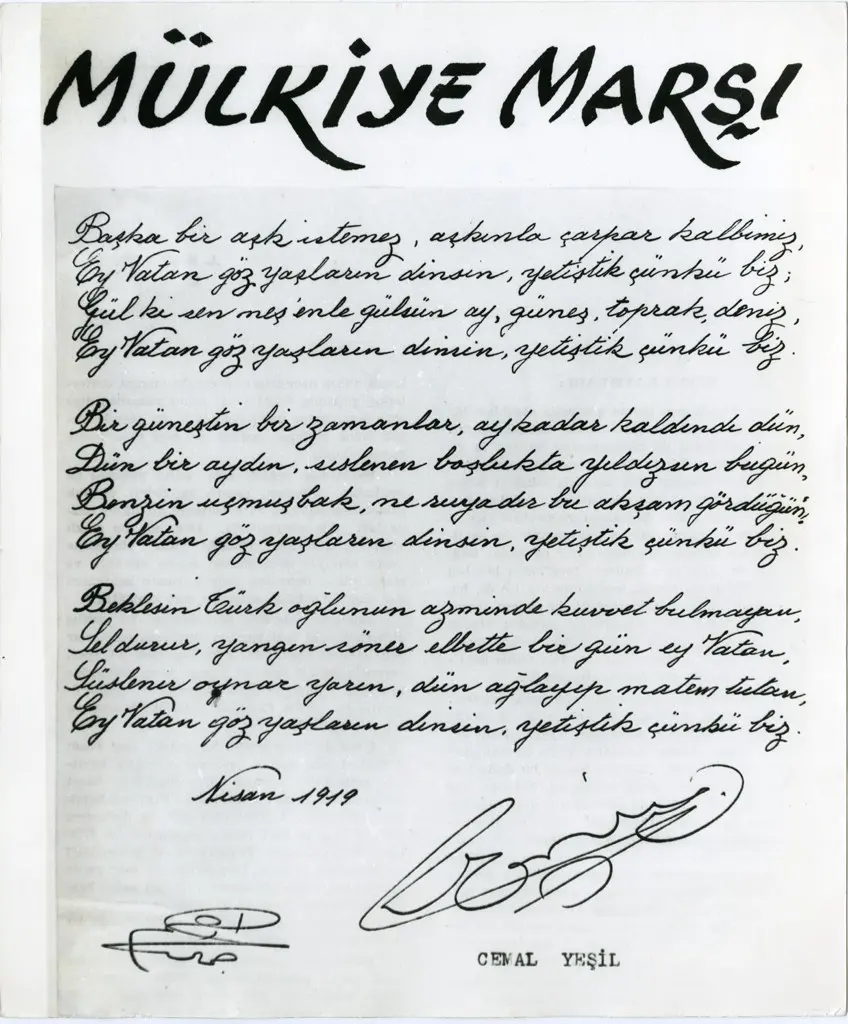 MÜLKİYE MARŞI
Başka bir aşk istemez, aşkınla çarpar kalbimiz,
Ey Vatan göz yaşların dinsin, yetiştik çünkü biz;
Gül ki sen neş'enle gülsün ay, güneş, toprak, deniz,
Ey Vatan göz yaşların dinsin, yetiştik çünkü biz.
Bir güneştin bir zamanlar, ay kadar kaldındı dün,
Dün bir aydın, sislenen boşlukta yıldızsın bugün,
Benzin uçmuş bak, ne rüyadır bu akşam gördüğün,
Ey Vatan göz yaşların dinsin, yetiştik çünkü biz.
Beklesin Türk oğlunun azminde kuvvet bulmayan,
Sel durur, yangın söner elbette bir gün ey Vatan,
Süslenir oynar yarın, dün ağlayıp matem tutan,
Ey Vatan göz yaşların dinsin, yetiştik çünkü biz.
Nisan 1919
CEMAL YEŞİL